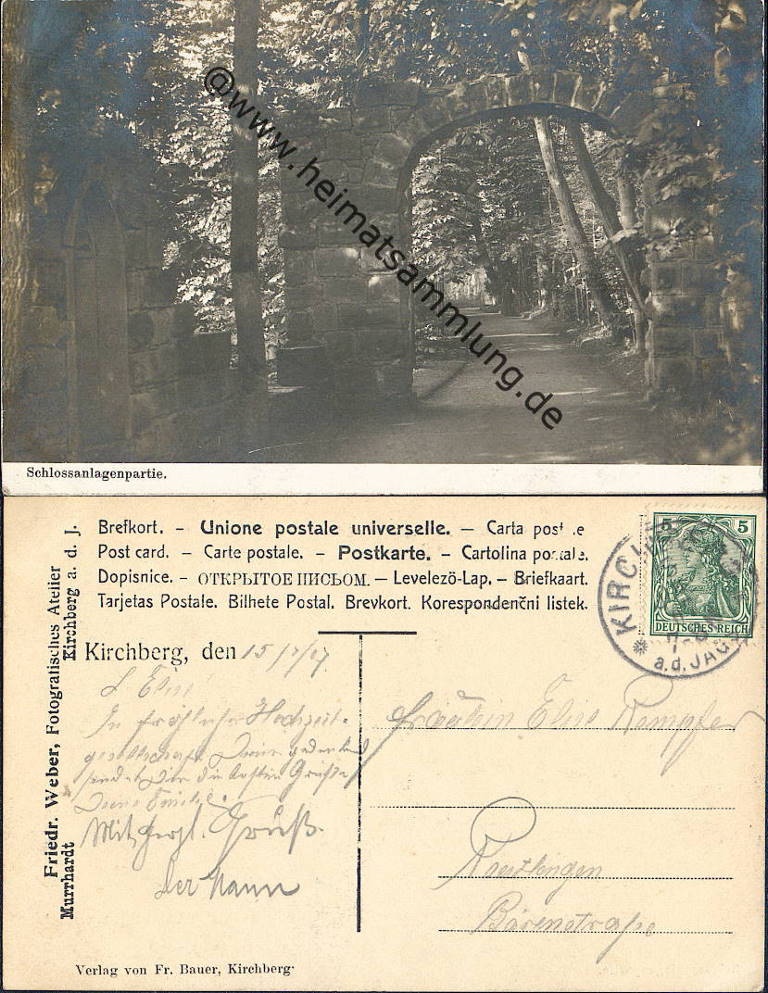 @www.heimatsammlung.de
Schlossanlagenpartie.
Brefkort. – Unione postale universelle. — Carta post
Post card. – Carte postale. – Postkarte. – Cartolina postale.
Dopisnice. – ОТКРЫТОЕ ПИСЬОМ. — Levelezö-Lap. – Briefkaart.
Tarjetas Postale. Bilhete Postal. Brevkort. Korespondenční listek.
Friedr. Weber, Fotografisches Atelier
Murrhardt Kirchberg a. d. J.
5 5
DEUTSCHES REICH
KIRCH
a.d. JAG
Kirchberg, den 15/7/07
L. Elise
In fröhlicher Hochzeit-
gesellschaft Deiner gedenkend
sendet Dir die besten Grüße
Deine Emilie.
Mit herzl. Gruß.
Fräulein Elise Kempfer
Reutlingen
Bärenstraße
Verlag von Fr. Bauer, Kirchberg